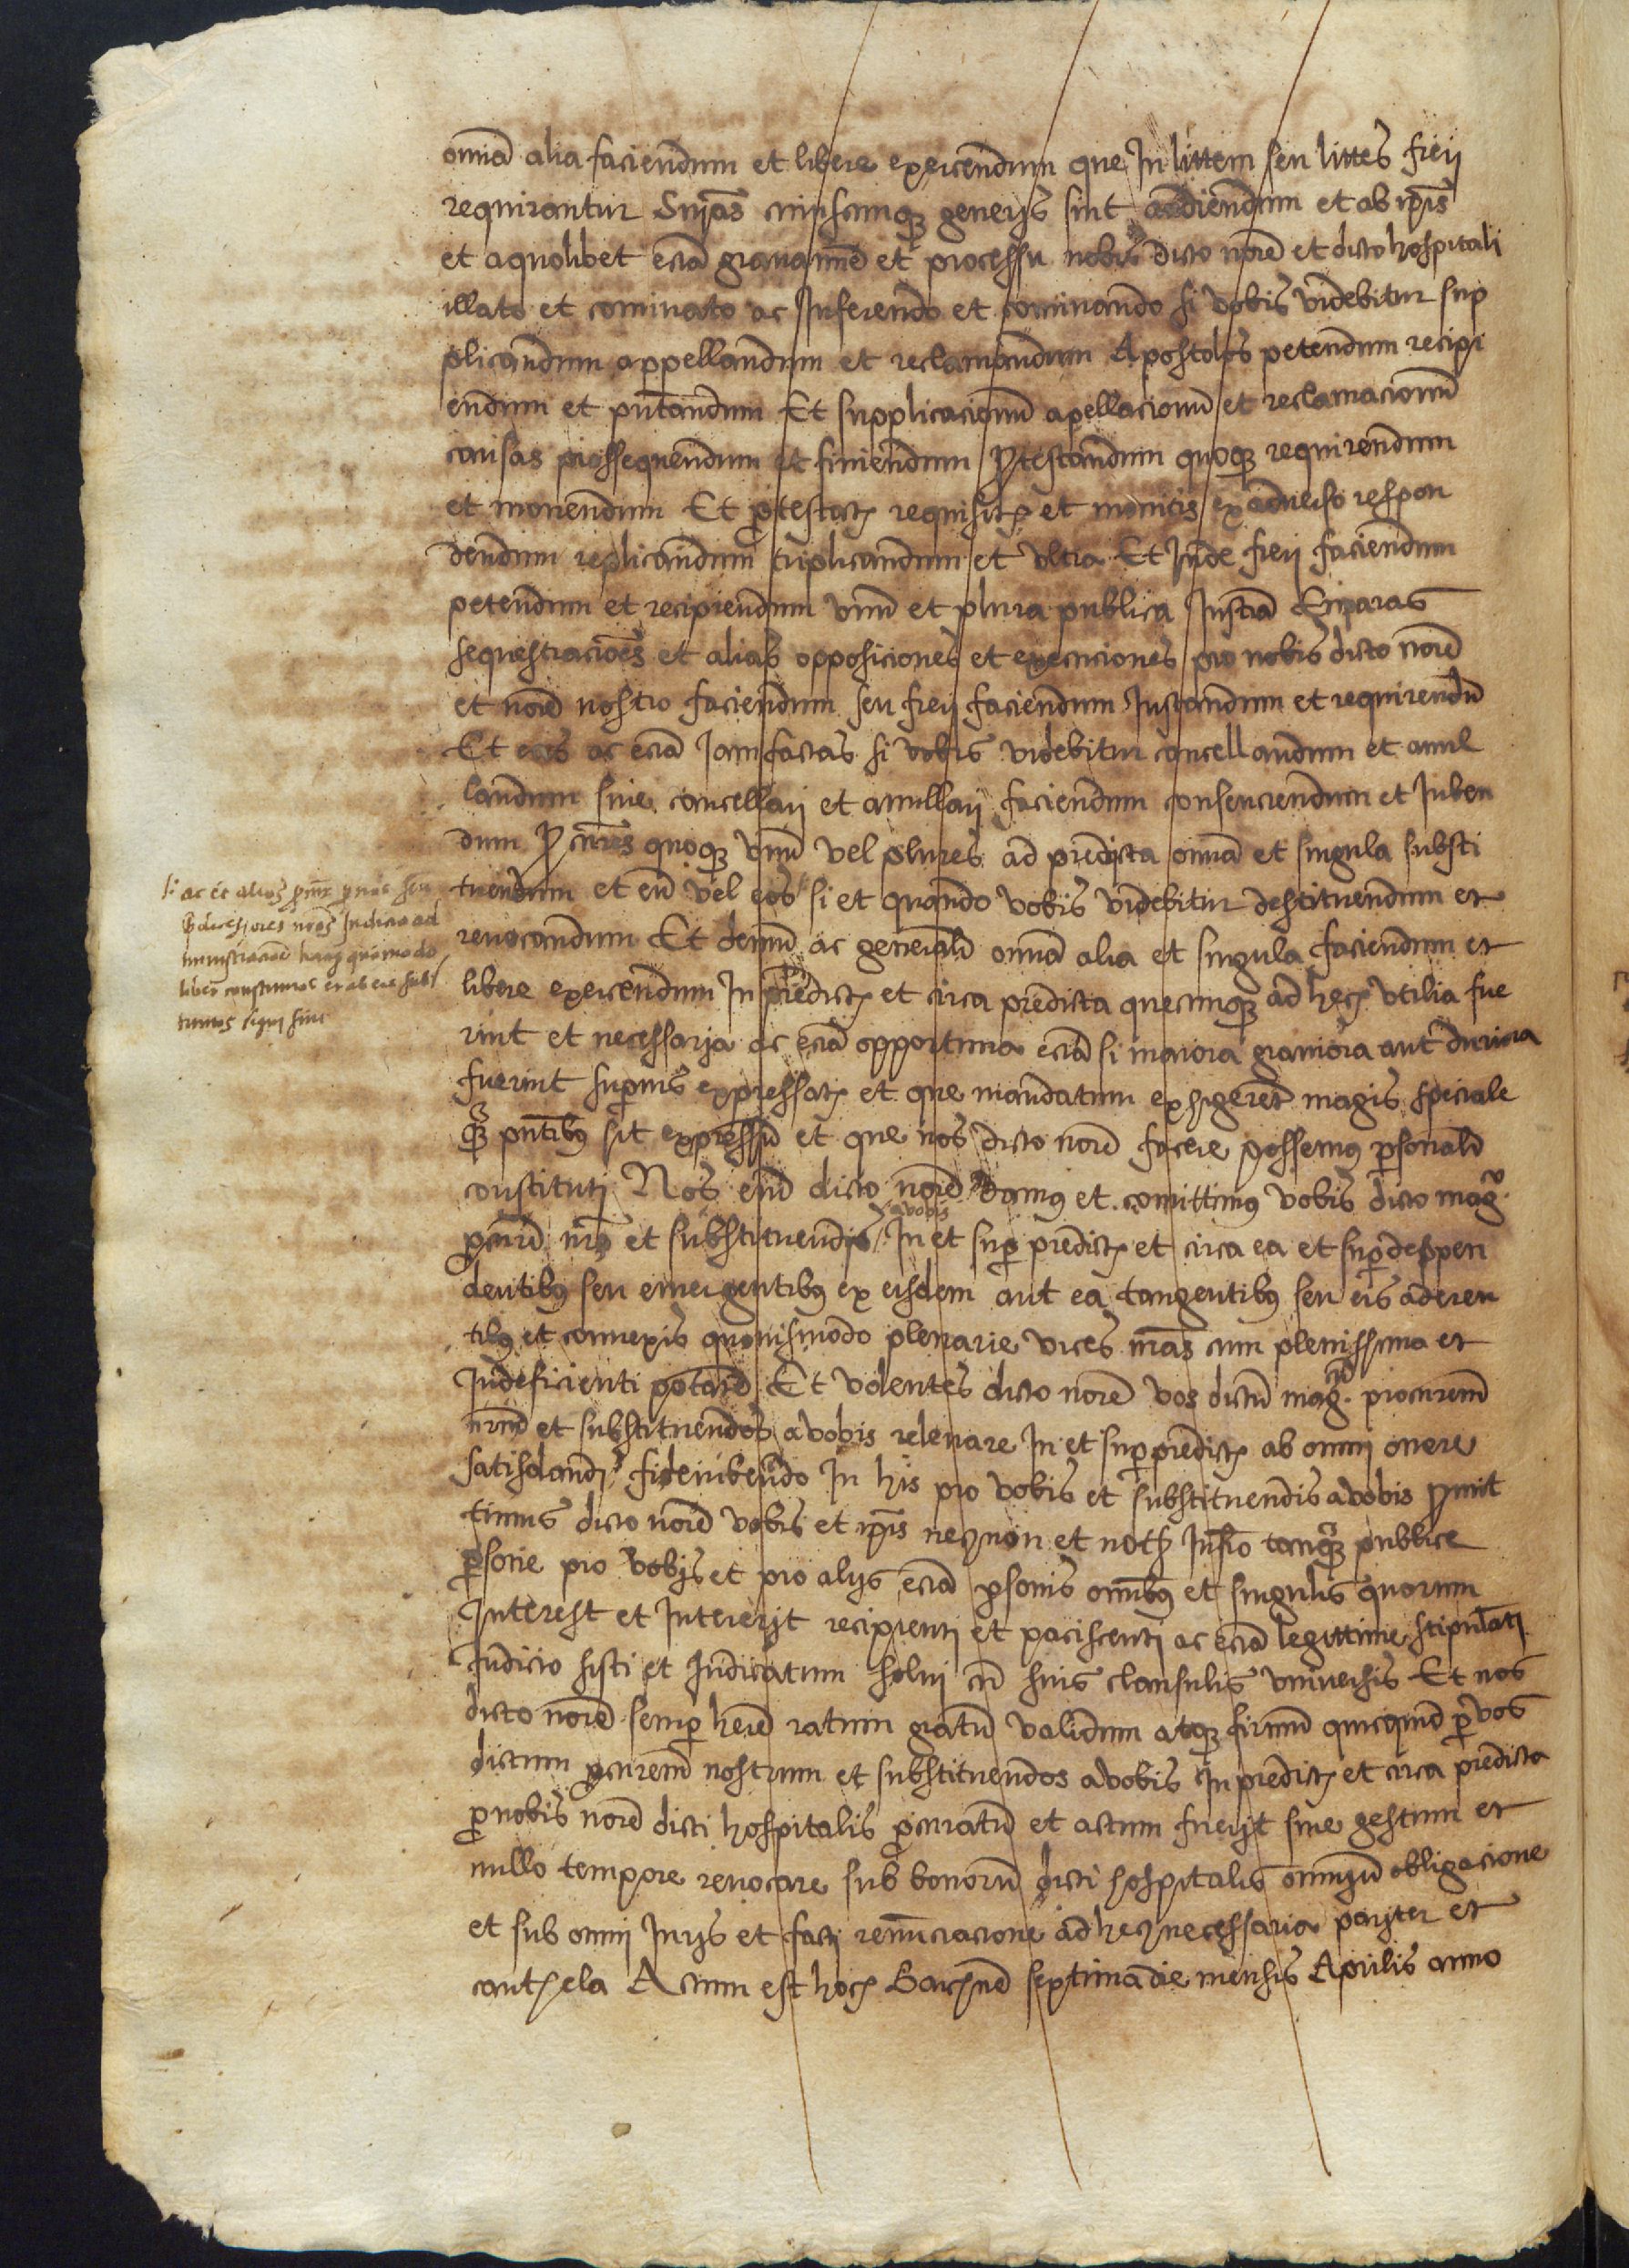 omnia alia faciendum et libere exercendum que In littem seu littes fierj
requirantur Snias cuiuscumque generis sint audiendum et ab ipis
et a quolibet eciã grauamine et processu nobis dicto noie et dicto hospitali
illato et cominato ac Inferendo et cominando si vobis videbitur sup
plicandum appellandum et reclamandum Apostolos petendum recipi
endum et pntandum Et supplicacionũ apellacionũ et reclamacionũ
causas prossequendum et finiendum Protestandum quoque requirendum
et monendum Et protestatis requisitis et monitis ex aduerso respon
dendum replicandum triplicandum et vltra Et Inde fierj faciendum
petendum et recipiendum vnũ et plura publica Instra Emparas
sequestraciões et alias opposiciones et execuciones pro nobis dicto noie
et noie nostro faciendum seu fierj faciendum Instandum et requirendũ
Et eas ac eciã Jam factas si vobis videbitur cancellandum et anul
landum siue cancellarj et anullarj faciendum consenciendum et Juben
dum Procures quoque vnũ vel plures ad predicta omnia et singula substi
tuendum et eũ vel eos si et quando vobis videbitur destituendum et
reuocandum Et demũ ac generalr omnia alia et singula faciendum et
libere exercendum In predictis et circa predicta quecumque ad hec vtilia fue
rint et necessaria ac eciã opportuna eciã si maiora grauiora aut duriora
fuerint superius expressatis et que mandatum exhigerent magis speciale
quam pntibus sit expressũ et que nos dicto noie facere possemus personalr
constitutj Nos enĩ dicto noie Damus et comittimus vobis dicto magco
procuri nro et substituendis a vobis In et super predictis et circa ea et super deppen
dentibus seu emergentibus ex eisdem aut ea tangentibus seu eis aderen
tibus et connexis quouismodo plenarie vices nras cum plenissima et
Indeficienti potate Et volentes dicto noie vos dictũ magcũ procurem
nrm et substituendos a vobis releuare In et super predictis ab omni onere
satisdandj fideiubendo In his pro vobis et substituendis a vobis Promit
timus dicto noie vobis et ipis necnon et noto Infro tanquam publice
persone pro vobis et pro aliis eciã personis omnibus et singulis quorum
Interest et Intererit recipientj et paciscentj ac eciã legittime stipulãti
Judicio sisti et Judicatum soluj cũ suis clausulis vniuersis Et nos
dicto noie semper here ratum gratũ validum atque firmũ quicquid per vos
dictum procurem nostrum et substituendos a vobis In predictis et circa predicta
pro nobis noie dicti hospitalis procuratũ et actum fuerit siue gestum et
nullo tempore reuocare sub bonorũ dicti hospitalis omniũ obligacione
et sub omnj Juris et factj renunciacione ad hec necessaria pariter et
cauthela Actum est hoc Barcne septima die mensis Aprilis anno